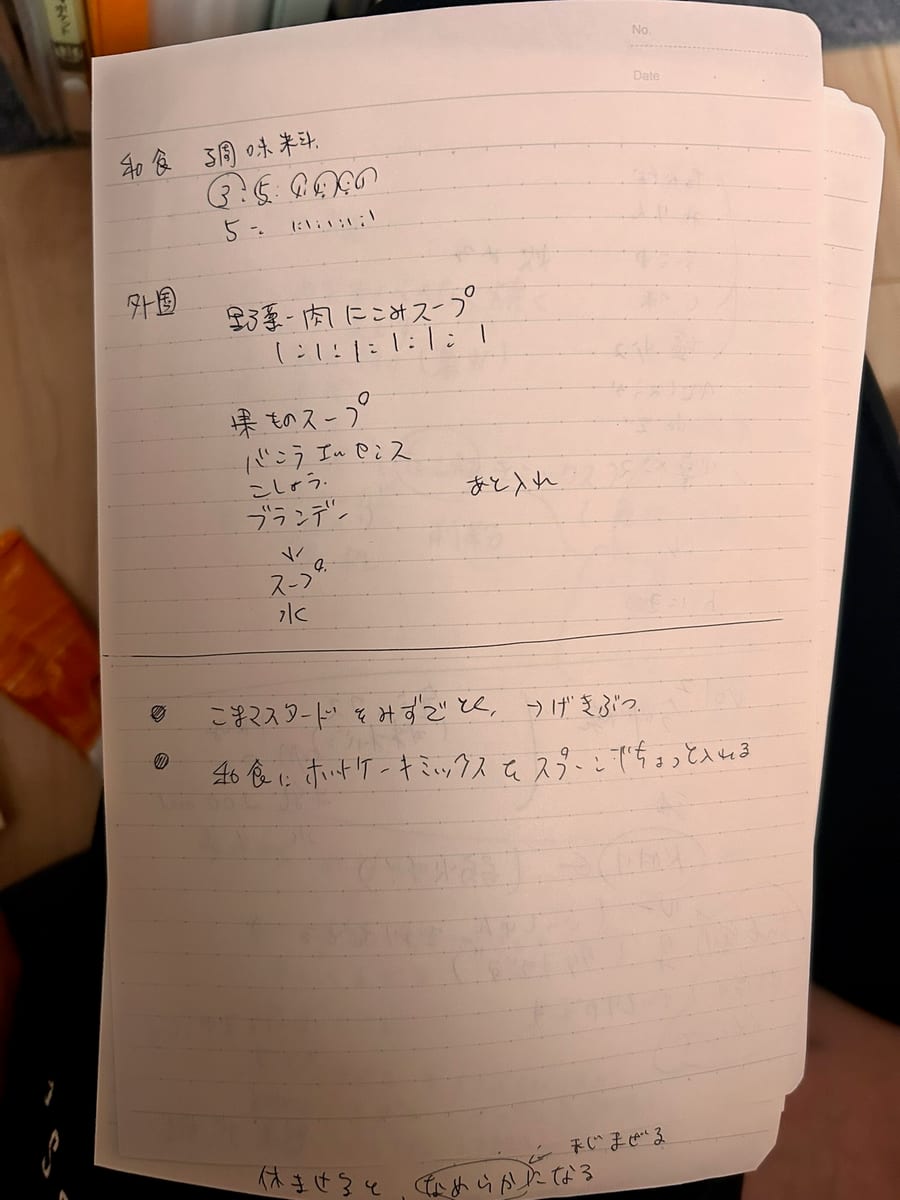 No.
Date
和食 調味料
外国 野菜-肉にこみスープ
1:1:1:1:1:1
果ものスープ
バニラエッセンス
こしょう
あと入れ
ブランデー
スープ
水
ごまマスタードをみずでとく, →げきぶつ
和食にホットケーキミックスをスプーンでちょっと入れる
まじまぜる
休ませると、なめらかになる